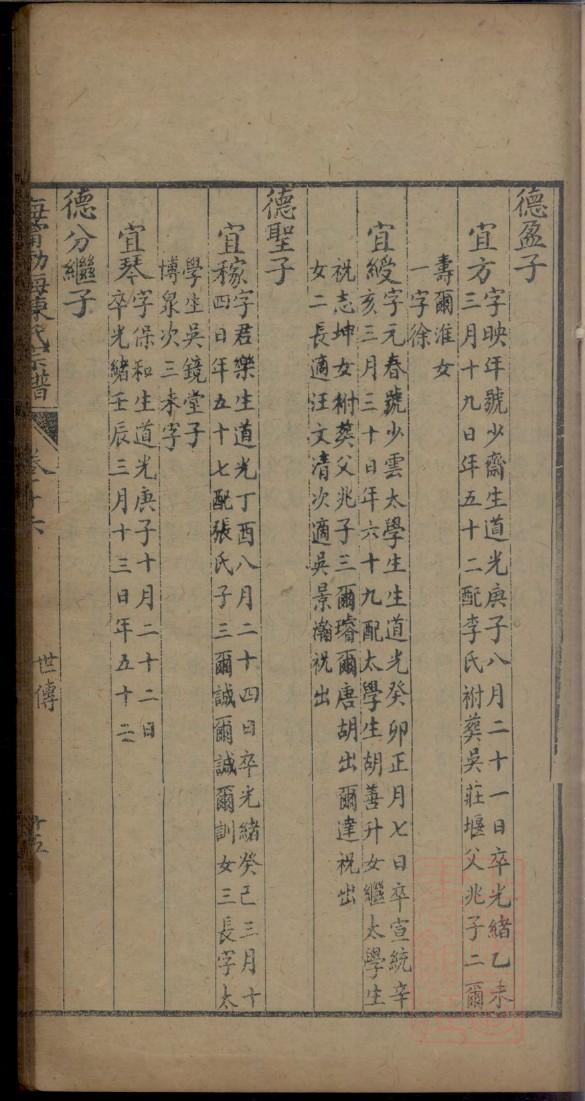 德盈子
宜方
字映年號少齋生道光庚子八月二十一日卒光緒乙未
三月十九日年五十二配李氏祔葬吳莊堰父兆子二爾
壽爾淮女
一字徐
宜綬
字元春號少雲太學生生道光癸卯正月七日卒宣統辛
亥三月三十日年六十九配太學生胡善升女繼太學生
祝志坤女祔葵父兆子三爾璿爾唐胡出爾達祝出
女二長適汪文清次適吳景瀚祝出
德聖子
宜稼
字君樂生道光丁酉八月二十四日卒光緒癸巳三月十
四日年五十七配張氏子三爾誠爾諴爾訓女三長字太
學生吳鏡堂子
博泉次三未字
宜琴
字保和生道光庚子十月二十二日
卒光緒壬辰三月十三日年五十三
德分繼子
海甯勃海陳氏宗譜
卷十六
世傳